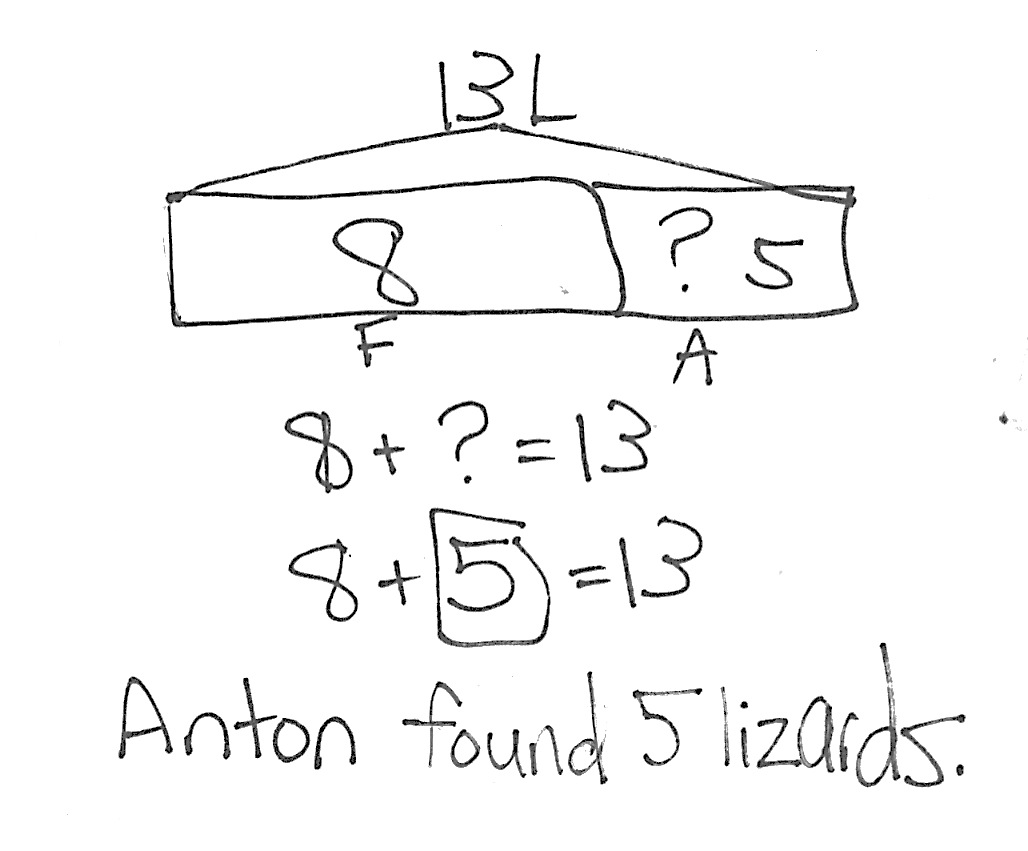 13 L
8 ? 5
F A
8 + ? = 13
8 + 5 = 13
Anton found 5 lizards.